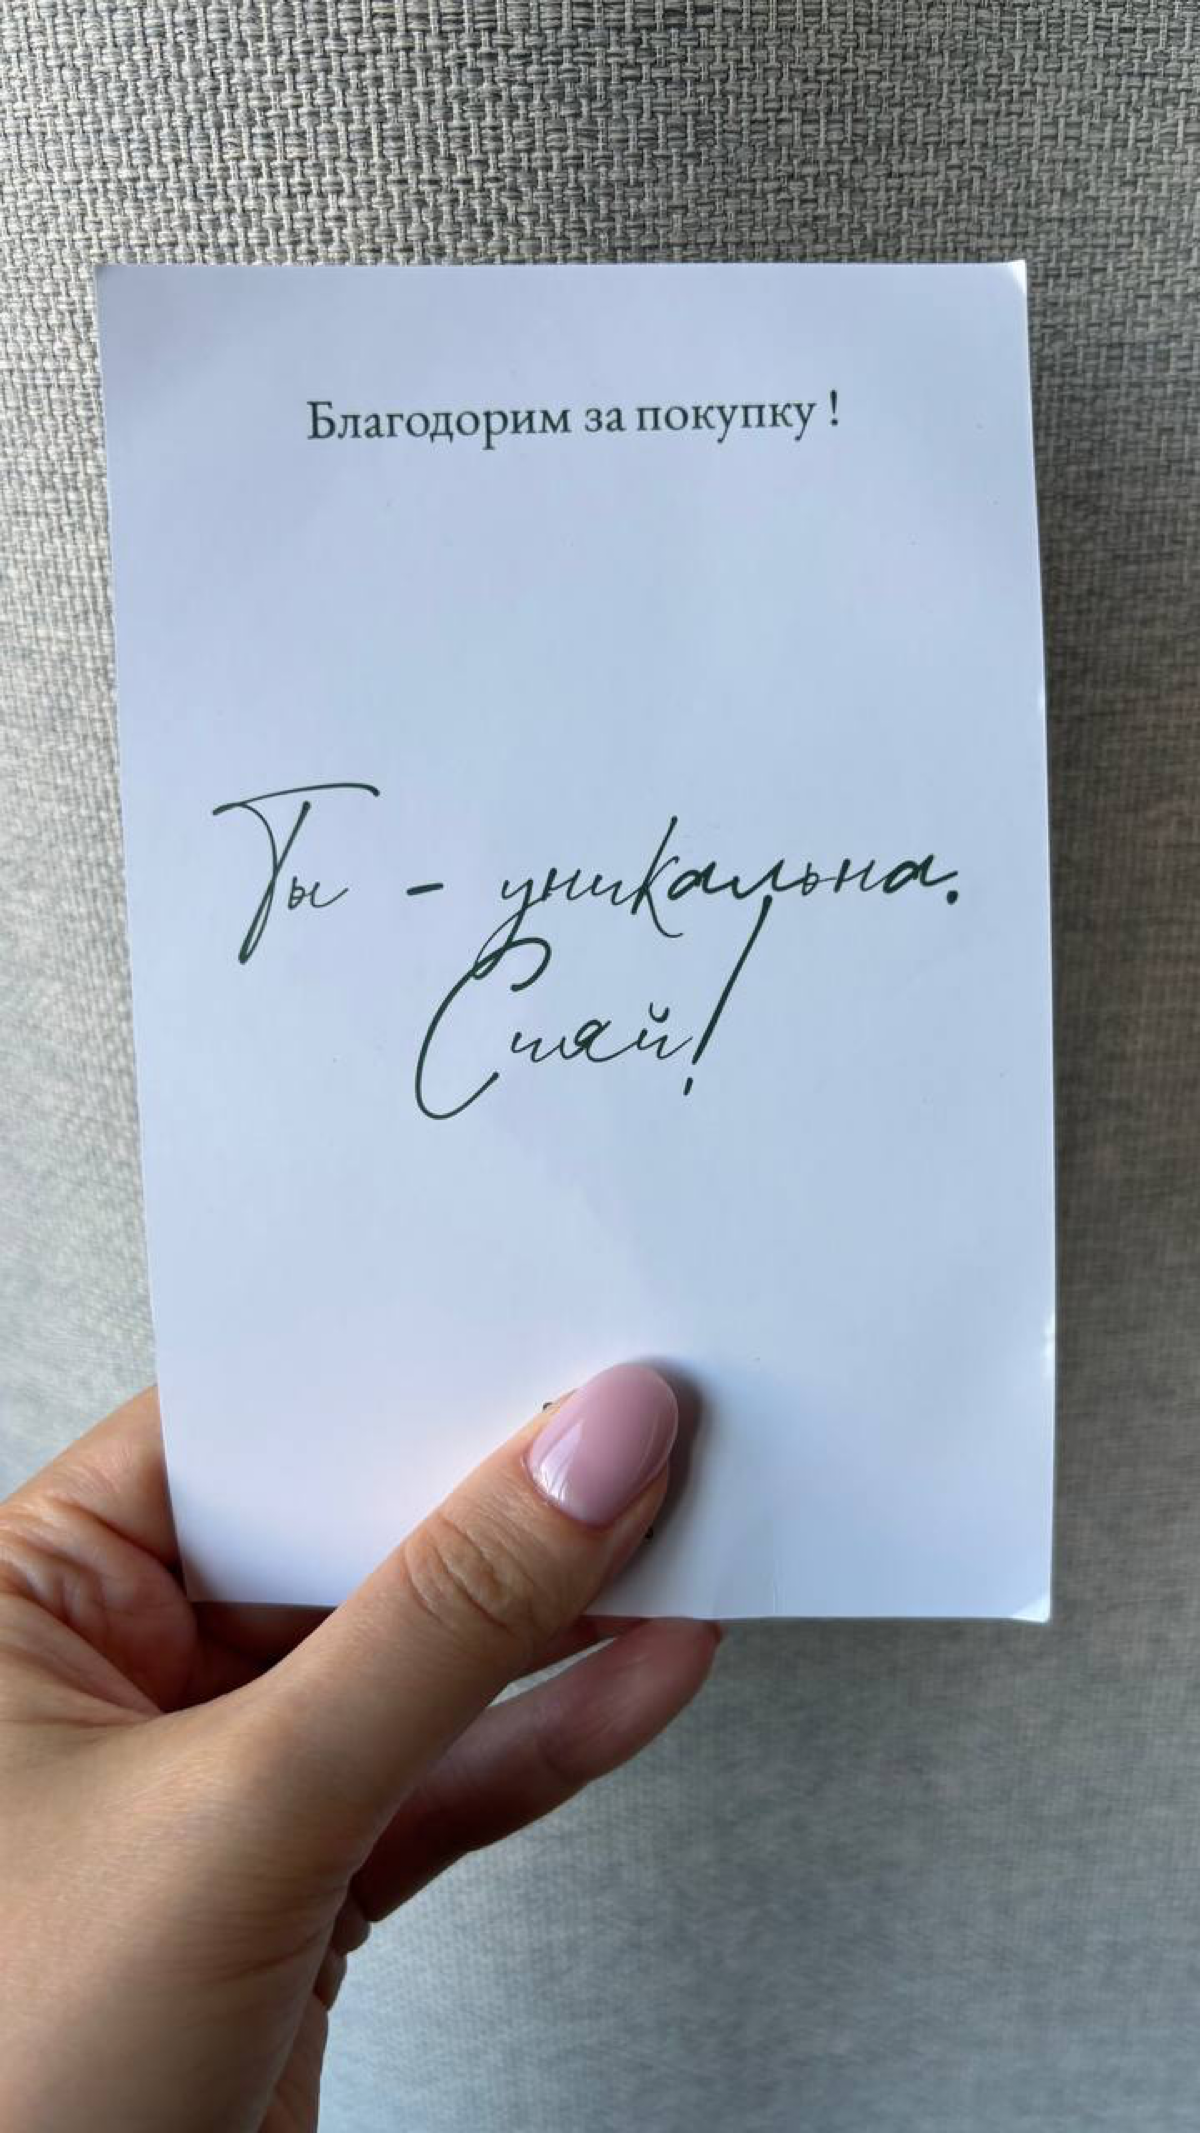 Благодорим за покупку !
Ты - уникальна.
Сияй!